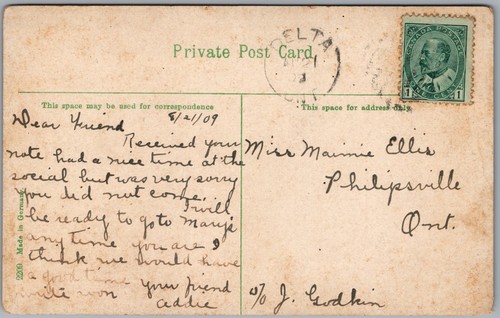 Private Post Card
DELTA
ONT
CANADA POSTAGE
1 1
This space may be used for correspondence
This space for address only.
8/21/09
Dear Friend
Received your
note had a nice time at the
social but was very sorry
you did not come. I will
be ready to go to Mary's
any time you are I
think we would have
a good time
write soon your friend
Addie
Miss Mamie Ellis
Philipsville
Ont.
c/o J. Godkin
2200 Made in Germany